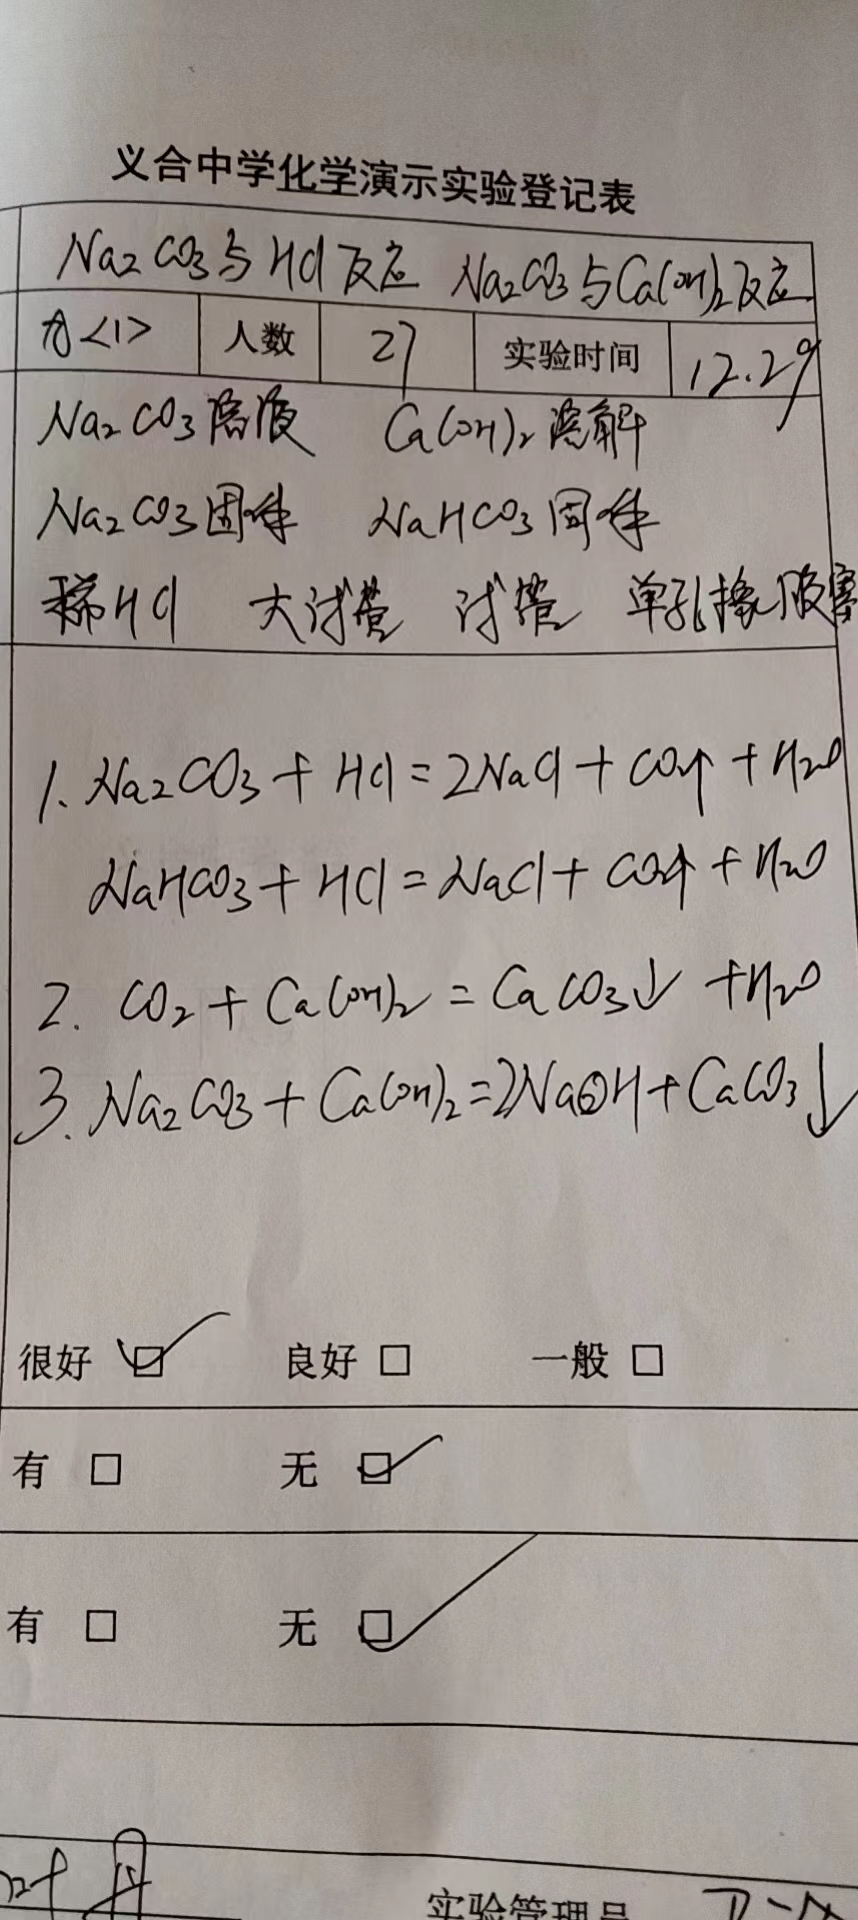 义合中学化学演示实验登记表
Na₂CO₃与HCl反应 Na₂CO₃与Ca(OH)₂反应
九<1> 人数 27 实验时间 12.29
Na₂CO₃溶液 Ca(OH)₂溶解
Na₂CO₃固体 NaHCO₃固体
稀HCl 大试管 试管 单孔橡胶塞
1. Na₂CO₃ + HCl = 2NaCl + CO₂↑ + H₂O
NaHCO₃ + HCl = NaCl + CO₂↑ + H₂O
2. CO₂ + Ca(OH)₂ = CaCO₃↓ + H₂O
3. Na₂CO₃ + Ca(OH)₂ = 2NaOH + CaCO₃↓
很好 ☑ 良好 □ 一般 □
有 □ 无 ☑
有 □ 无 ☑
丹 实验管理员